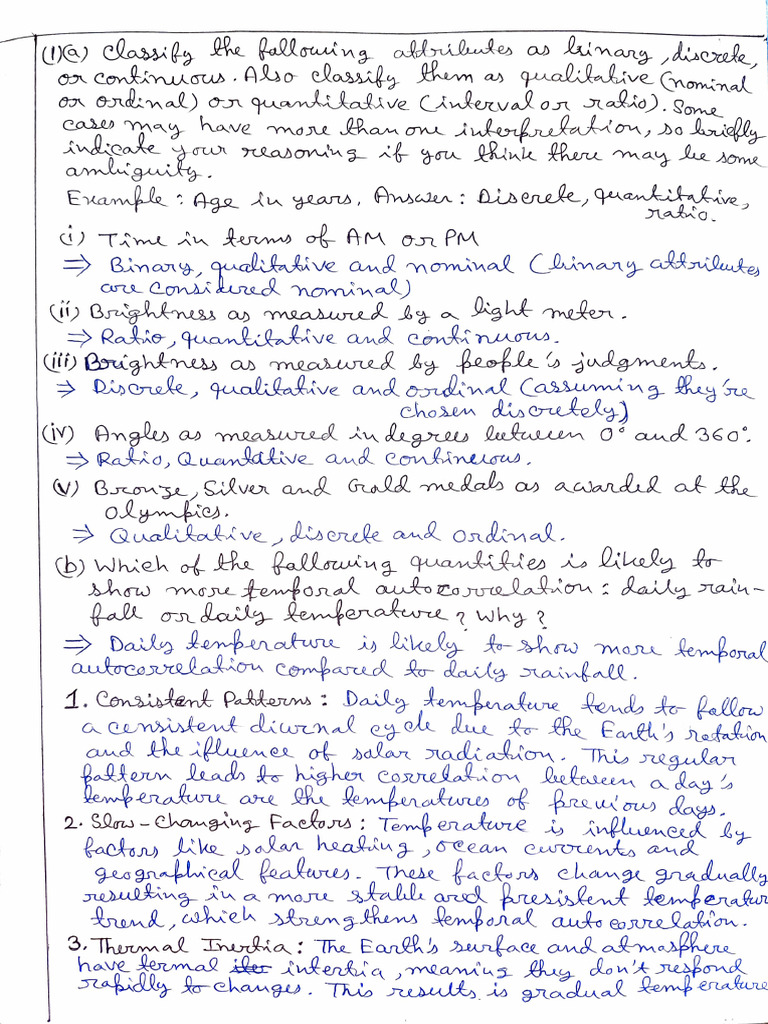 (1)(a) Classify the following attributes as binary, discrete,
or continuous. Also classify them as qualitative (nominal
or ordinal) or quantitative (interval or ratio). Some
cases may have more than one interpretation, so briefly
indicate your reasoning if you think there may be some
ambiguity.
Example: Age in years. Answer: Discrete, quantitative,
ratio.
(i) Time in terms of AM or PM
⇒ Binary, qualitative and nominal (binary attributes
are considered nominal)
(ii) Brightness as measured by a light meter.
⇒ Ratio, quantitative and continuous.
(iii) Brightness as measured by people's judgments.
⇒ Discrete, qualitative and ordinal (assuming they're
chosen discretely)
(iv) Angles as measured in degrees between 0° and 360°.
⇒ Ratio, Quantitative and continuous.
(v) Bronze, Silver and Gold medals as awarded at the
Olympics.
⇒ Qualitative, discrete and ordinal.
(b) Which of the following quantities is likely to
show more temporal autocorrelation: daily rain-
fall or daily temperature? Why?
⇒ Daily temperature is likely to show more temporal
autocorrelation compared to daily rainfall.
1. Consistent Patterns: Daily temperature tends to follow
a consistent diurnal cycle due to the Earth's rotation
and the ifluence of solar radiation. This regular
pattern leads to higher correlation between a day's
temperature are the temperatures of previous days.
2. Slow-Changing Factors: Temperature is influenced by
factors like solar heating, ocean currents and
geographical features. These factors change gradually
resulting in a more stable and presistent temperatur
trend, which strengthens temporal autocorrelation.
3. Thermal Inertia: The Earth's surface and atmosphere
have termal intertia, meaning they don't respond
rapidly to changes. This results is gradual temperature